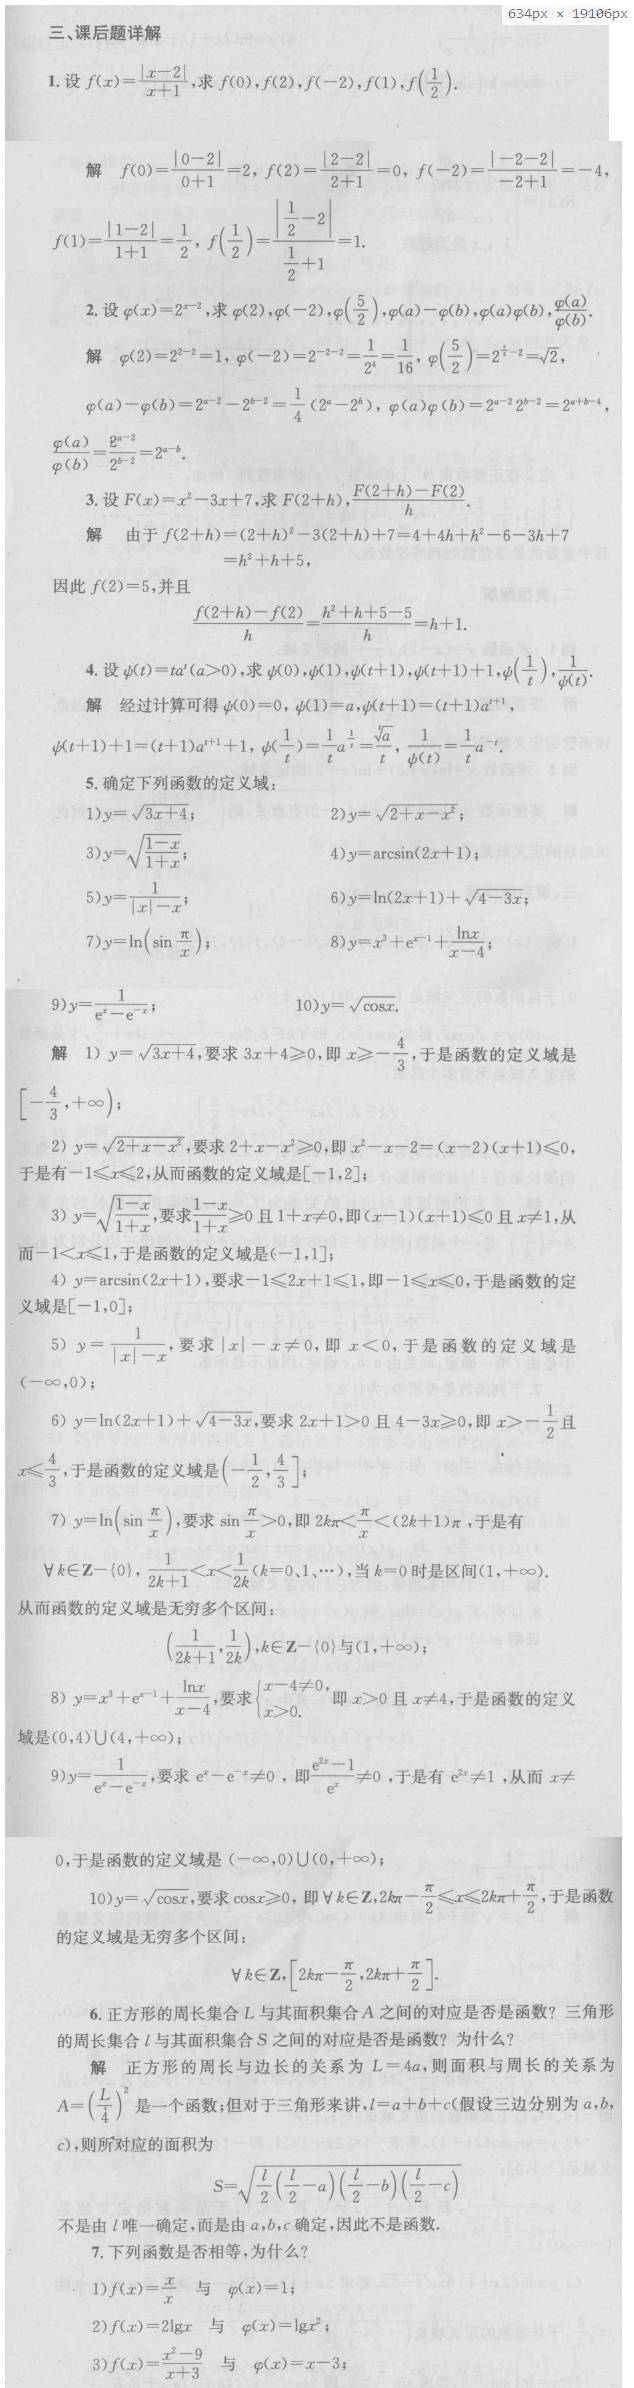 634px × 19106px
三、课后题详解
1. 设 f(x)=|x-2|/(x+1),求 f(0),f(2),f(-2),f(1),f(1/2).
解 f(0)=|0-2|/(0+1)=2, f(2)=|2-2|/(2+1)=0, f(-2)=|-2-2|/(-2+1)=-4,
f(1)=|1-2|/(1+1)=1/2, f(1/2)=|1/2-2|/(1/2+1)=1.
2. 设 φ(x)=2^(x-2),求 φ(2),φ(-2),φ(5/2),φ(a)-φ(b),φ(a)φ(b),φ(a)/φ(b).
解 φ(2)=2^(2-2)=1, φ(-2)=2^(-2-2)=1/2^4=1/16, φ(5/2)=2^(5/2-2)=√2,
φ(a)-φ(b)=2^(a-2)-2^(b-2)=1/4(2^a-2^b), φ(a)φ(b)=2^(a-2)2^(b-2)=2^(a+b-4),
φ(a)/φ(b)=2^(a-2)/2^(b-2)=2^(a-b).
3. 设 F(x)=x²-3x+7,求 F(2+h),(F(2+h)-F(2))/h.
解 由于 f(2+h)=(2+h)²-3(2+h)+7=4+4h+h²-6-3h+7
=h²+h+5,
因此 f(2)=5,并且
(f(2+h)-f(2))/h=(h²+h+5-5)/h=h+1.
4. 设 ψ(t)=ta^t(a>0),求 ψ(0),ψ(1),ψ(t+1),ψ(t+1)+1,ψ(1/t),1/ψ(t).
解 经过计算可得 ψ(0)=0, ψ(1)=a,ψ(t+1)=(t+1)a^(t+1),
ψ(t+1)+1=(t+1)a^(t+1)+1, ψ(1/t)=1/t a^(1/t)=ᵗ√a/t, 1/ψ(t)=1/t a^(-t).
5. 确定下列函数的定义域:
1)y=√(3x+4); 2)y=√(2+x-x²);
3)y=√((1-x)/(1+x)); 4)y=arcsin(2x+1);
5)y=1/(|x|-x); 6)y=ln(2x+1)+√(4-3x);
7)y=ln(sin π/x); 8)y=x³+e^(x-1)+lnx/(x-4);
9)y=1/(e^x-e^(-x)); 10)y=√cosx.
解 1) y=√(3x+4),要求 3x+4≥0,即 x≥-4/3,于是函数的定义域是
[-4/3,+∞);
2) y=√(2+x-x²),要求 2+x-x²≥0,即 x²-x-2=(x-2)(x+1)≤0,
于是有-1≤x≤2,从而函数的定义域是[-1,2];
3) y=√((1-x)/(1+x)),要求(1-x)/(1+x)≥0 且 1+x≠0,即(x-1)(x+1)≤0 且 x≠1,从
而-1<x≤1,于是函数的定义域是(-1,1];
4) y=arcsin(2x+1),要求-1≤2x+1≤1,即-1≤x≤0,于是函数的定
义域是[-1,0];
5) y=1/(|x|-x),要求 |x|-x≠0,即 x<0,于是函数的定义域是
(-∞,0);
6) y=ln(2x+1)+√(4-3x),要求 2x+1>0 且 4-3x≥0,即 x>-1/2且
x≤4/3,于是函数的定义域是(-1/2,4/3];
7) y=ln(sin π/x),要求 sin π/x>0,即 2kπ<π/x<(2k+1)π,于是有
∀k∈Z-{0}, 1/(2k+1)<x<1/2k(k=0、1、…),当 k=0 时是区间(1,+∞).
从而函数的定义域是无穷多个区间:
(1/(2k+1),1/2k),k∈Z-{0}与(1,+∞);
8) y=x³+e^(x-1)+lnx/(x-4),要求{x-4≠0, x>0. 即 x>0 且 x≠4,于是函数的定义
域是(0,4)∪(4,+∞);
9)y=1/(e^x-e^(-x)),要求 e^x-e^(-x)≠0,即(e^(2x)-1)/e^x≠0,于是有 e^(2x)≠1,从而 x≠
0,于是函数的定义域是 (-∞,0)∪(0,+∞);
10)y=√cosx,要求 cosx≥0, 即 ∀k∈Z,2kπ-π/2≤x≤2kπ+π/2,于是函数
的定义域是无穷多个区间:
∀k∈Z,[2kπ-π/2,2kπ+π/2].
6. 正方形的周长集合 L 与其面积集合 A 之间的对应是否是函数? 三角形
的周长集合 l 与其面积集合 S 之间的对应是否是函数? 为什么?
解 正方形的周长与边长的关系为 L=4a,则面积与周长的关系为
A=(L/4)² 是一个函数;但对于三角形来讲,l=a+b+c(假设三边分别为 a,b,
c),则所对应的面积为
S=√(l/2(l/2-a)(l/2-b)(l/2-c))
不是由 l 唯一确定,而是由 a,b,c 确定,因此不是函数.
7. 下列函数是否相等,为什么?
1)f(x)=x/x 与 φ(x)=1;
2)f(x)=2lgx 与 φ(x)=lgx²;
3)f(x)=(x²-9)/(x+3) 与 φ(x)=x-3;